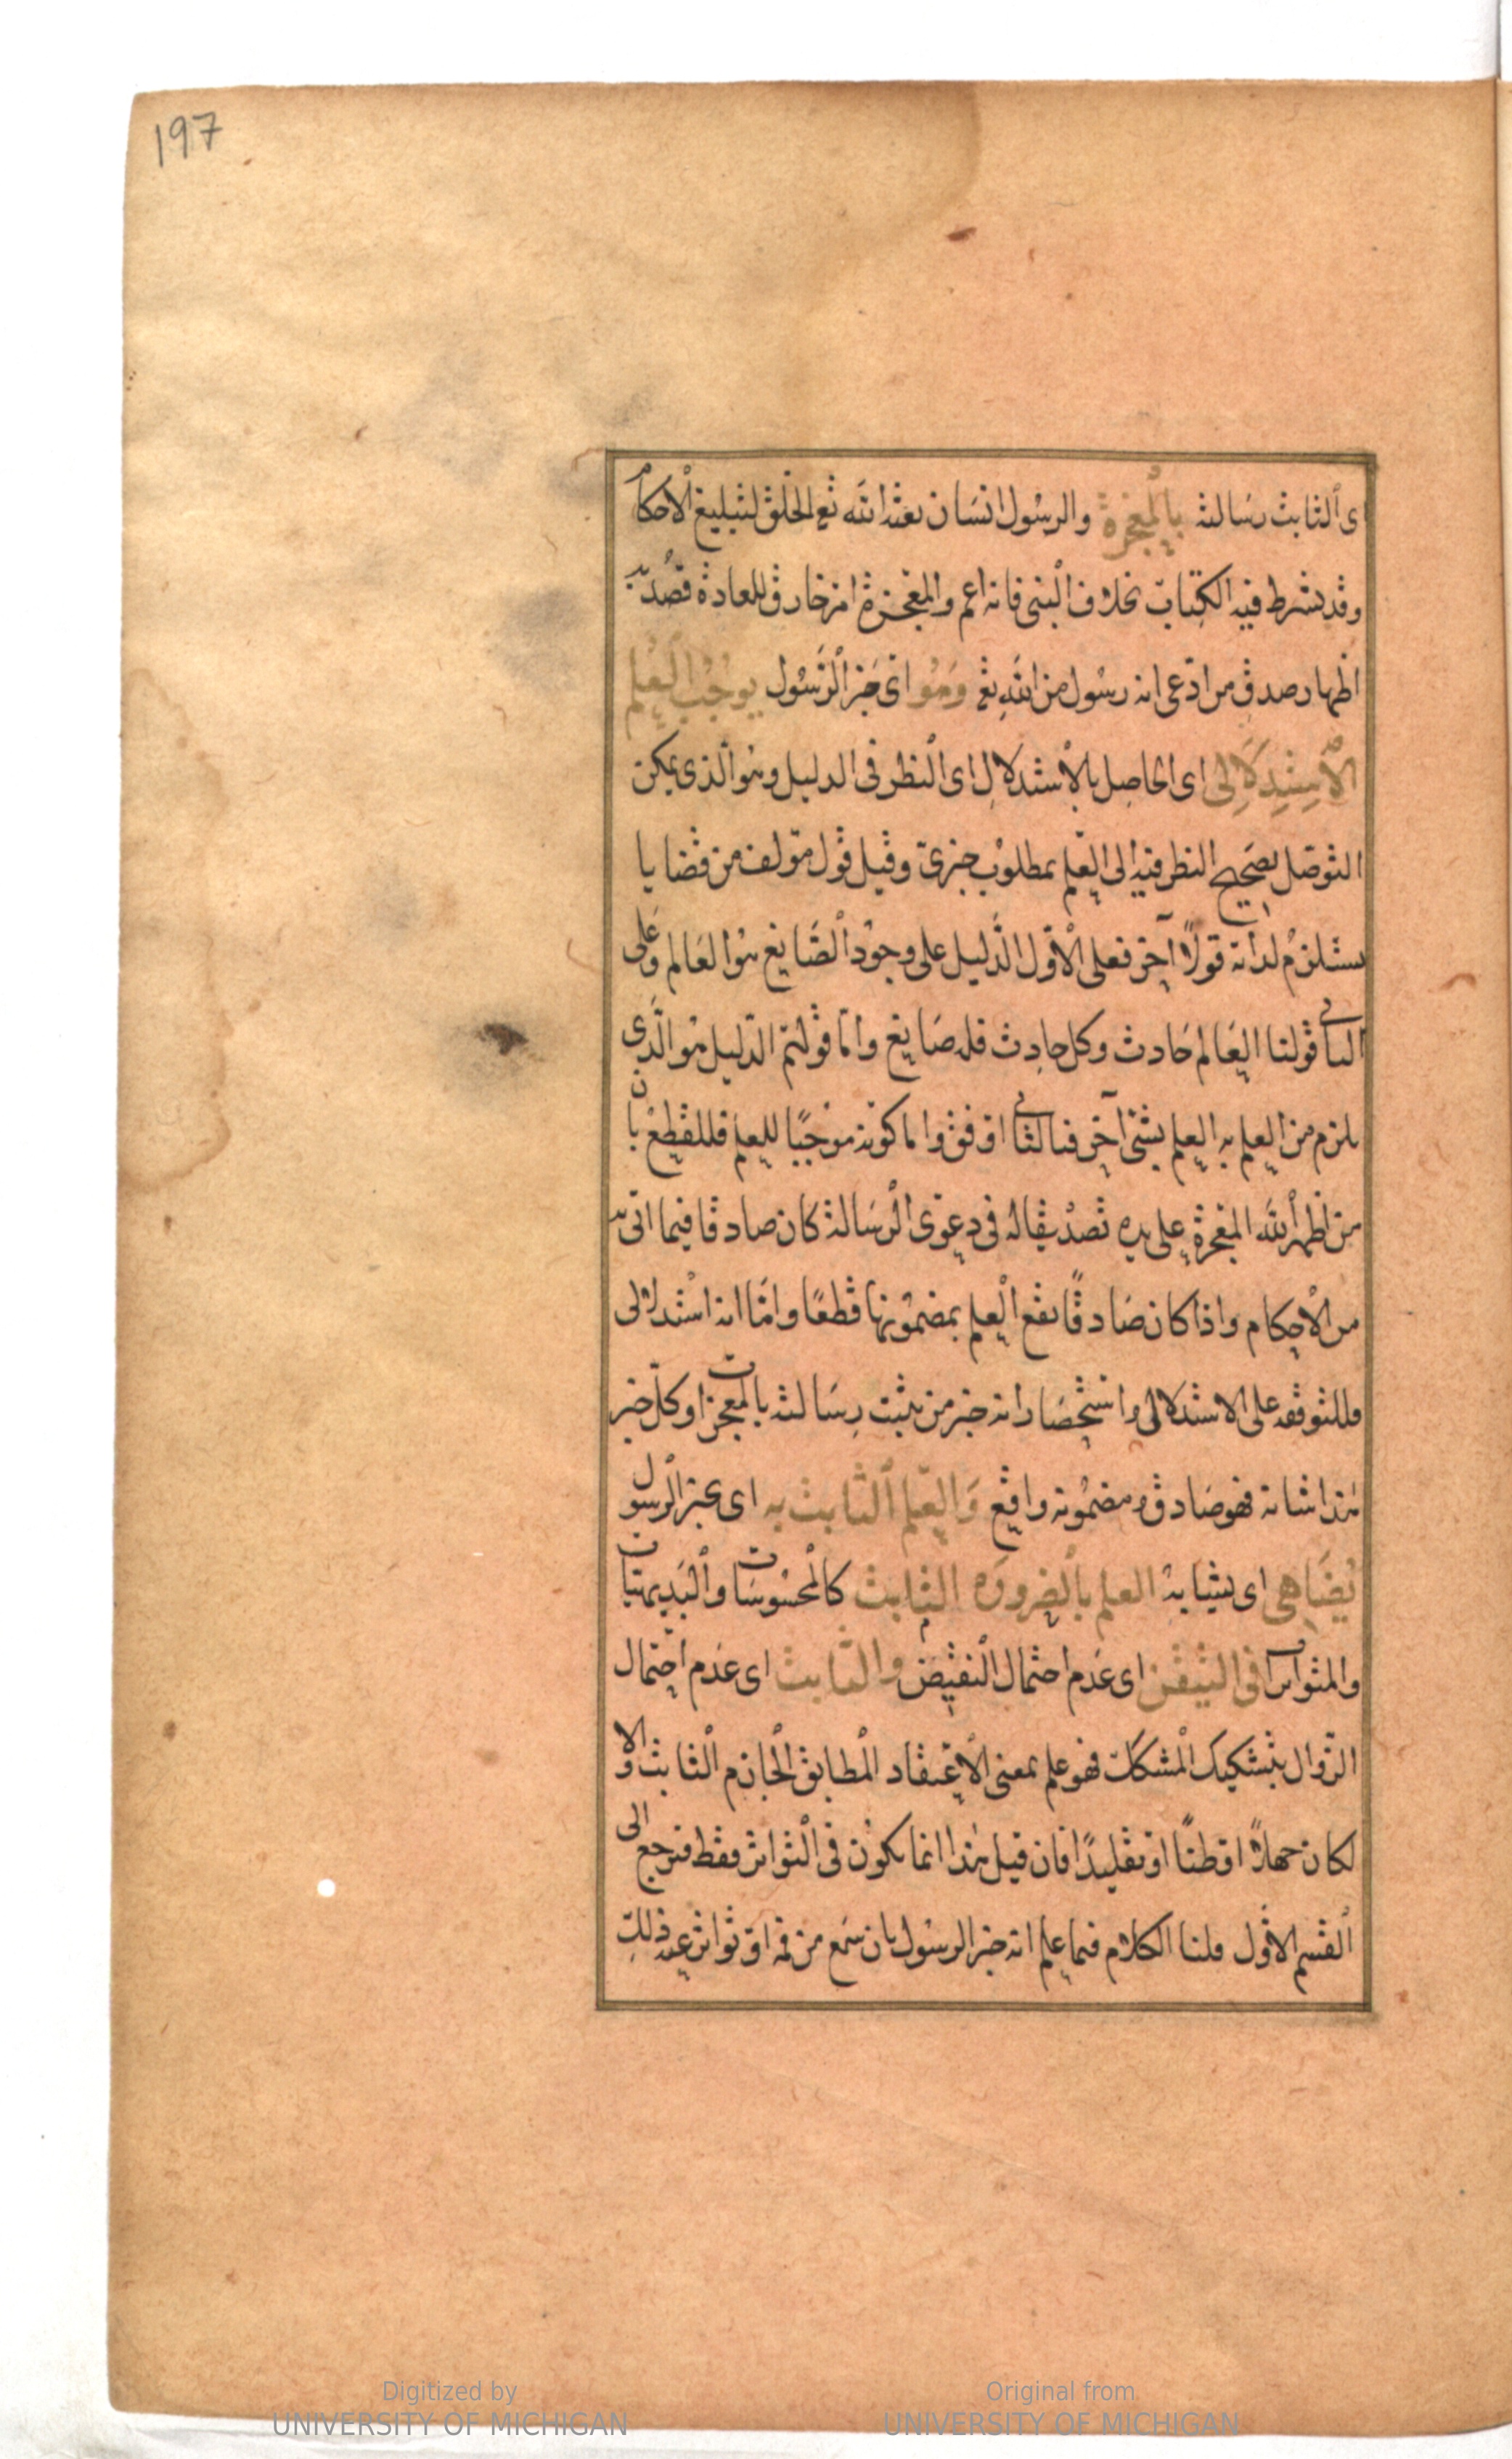 197
ای الثابت رسالته بالمعجزة والرسول انسان بعثه الله تع الى الخلق لتبليغ الاحكام
وقد يشترط فيه الكتاب بخلاف النبى فانه اعم والمعجزة امر خارق للعادة قصد به
اظهار صدق من ادعى انه رسول من الله تع وهو اى خبر الرسول يوجب العلم
الاستدلالى اى الحاصل بالاستدلال اى النظر فى الدليل وهو الذى يمكن
التوصل بصحيح النظر فيه الى العلم بمطلوب خبرى وقيل قول مؤلف من قضايا
يستلزم لذاته قولا آخر فعلى الاول الدليل على وجود الصانع هو العالم وعلى
الثانى قولنا العالم حادث وكل حادث فله صانع واما قولهم الدليل هو الذى
يلزم من العلم به العلم بشئ آخر فبالثانى اوفق واما كونه موجبا للعلم فللقطع بان
من اظهر الله المعجزة على يده تصديقا له فى دعوى الرسالة كان صادقا فيما اتى به
من الاحكام واذا كان صادقا يقع العلم بمضمونها قطعا واما انه استدلالى
فللتوقفه على الاستدلالى واستحضار انه خبر من يثبت رسالته بالمعجزات وكل خبر
هذا شانه فهو صادق ومضمونه واقع والعلم الثابت به اى بخبر الرسول
يضاهى اى يشابه العلم بالضرورة الثابت كالمحسوسات والبديهيات
والمتواترات فى التيقن اى عدم احتمال النقيض والثابت اى عدم احتمال
الزوال بتشكيك المشكك فهو علم بمعنى الاعتقاد المطابق الجازم الثابت والا
لكان جهلا او ظنا او تقليدا فان قيل هذا انما يكون فى التواتر فقط فيرجع الى
القسم الاول قلنا الكلام فيما علم انه خبر الرسول بان سمع من فيه او تواتر عنه ذلك
Digitized by
UNIVERSITY OF MICHIGAN
Original from
UNIVERSITY OF MICHIGAN